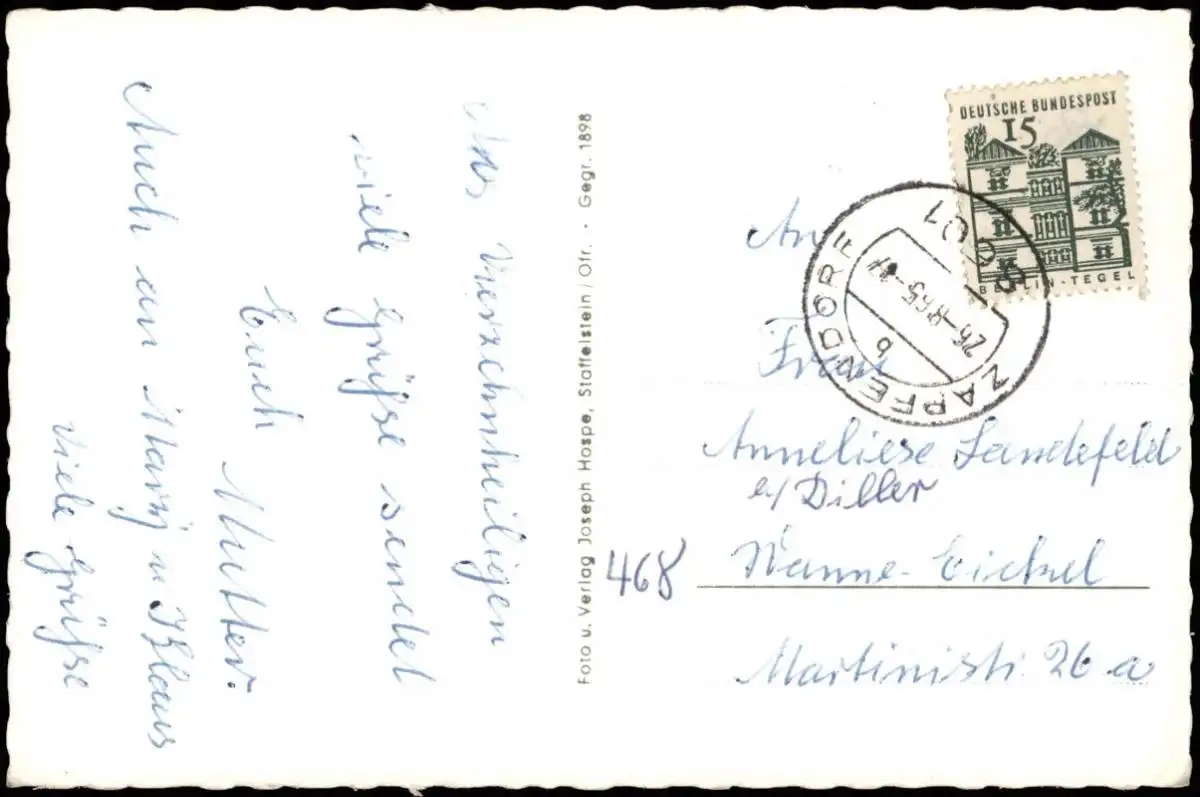 Aus Vierzehnheiligen
viele Grüße sendet
Euch
Mutter.
Auch an Marij u Klaus
viele Grüße
Foto u. Verlag Joseph Hospe, Staffelstein/Ofr. · Gegr. 1898
DEUTSCHE BUNDESPOST
15
BERLIN-TEGEL
8601
26-8.65-17
b
ZAPFENDORF
An
Frau
Anneliese Landefeld
b/ Diller
468 Wanne-Eickel
Martinistr 26 a